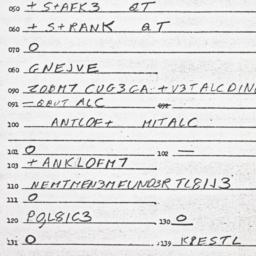 050 + S+AFK3 QT
060 + S+PANK QT
070 O
080 GNEJVE
090 ZOBM7 CUG3CA + V3TALCDIN
091 – QBUT ALC 092
100 ANTLOF+ MITALC
101 O 102 —
103 + ANKLOFM7
110 NEMTMEN3MFUND3R TL8IJ3
111 O
120 PQL8IC3 130 O
131 O 139 KPESTL